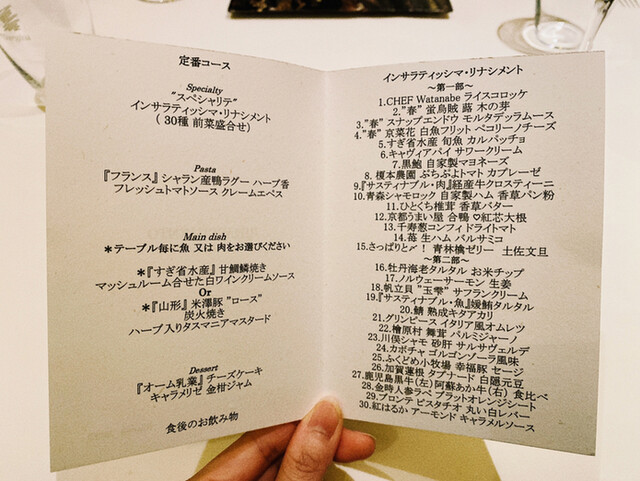 定番コース
Specialty
"スペシャリテ"
インサラティッシマ・リナシメント
( 30種 前菜盛合せ )
Pasta
『フランス』シャラン産鴨ラグー ハーブ香
フレッシュトマトソース クレームエペス
Main dish
＊テーブル毎に魚 又は 肉をお選びください
＊『すぎ省水産』甘鯛鱗焼き
マッシュルーム合せた白ワインクリームソース
Or
＊『山形』米澤豚 "ロース"
炭火焼き
ハーブ入りタスマニアマスタード
Dessert
『オーム乳業』チーズケーキ
キャラメリゼ 金柑ジャム
食後のお飲み物
インサラティッシマ・リナシメント
～第一部～
1.CHEF Watanabe ライスコロッケ
2."春" 蛍烏賊 蕗 木の芽
3."春" スナップエンドウ モルタデッラムース
4."春" 京菜花 白魚フリット ペコリーノチーズ
5.すぎ省水産 旬魚 カルパッチョ
6.キャヴィアパイ サワークリーム
7.黒鮑 自家製マヨネーズ
8.榎本農園 ぷちぷよトマト カプレーゼ
9.『サスティナブル・肉』経産牛クロスティーニ
10.青森シャモロック 自家製ハム 香草パン粉
11.ひとくち椎茸 香草バター
12.京都うまい屋 合鴨♡紅芯大根
13.千寿葱コンフィドライトマト
14.苺 生ハム バルサミコ
15.さっぱりと〆! 青林檎ゼリー 土佐文旦
～第二部～
16.牡丹海老タルタル お米チップ
17.ノルウェーサーモン 生姜
18.帆立貝 "玉雫" サフランクリーム
19.『サスティナブル・魚』媛鮪タルタル
20.鯖 熟成キタアカリ
21.グリンピース イタリア風オムレツ
22.檜原村 舞茸 パルミジャーノ
23.川俣シャモ 砂肝 サルサヴェルデ
24.カボチャ ゴルゴンゾーラ風味
25.ふくどめ小牧場 幸福豚 セージ
26.加賀蓮根 タプナード 白隠元豆
27.鹿児島黒牛(左) 阿蘇あか牛(右) 食比べ
28.金時人参ラペ ブラッドオレンジシート
29.ブロンテ ピスタチオ 丸い白レバー
30.紅はるか アーモンド キャラメルソース